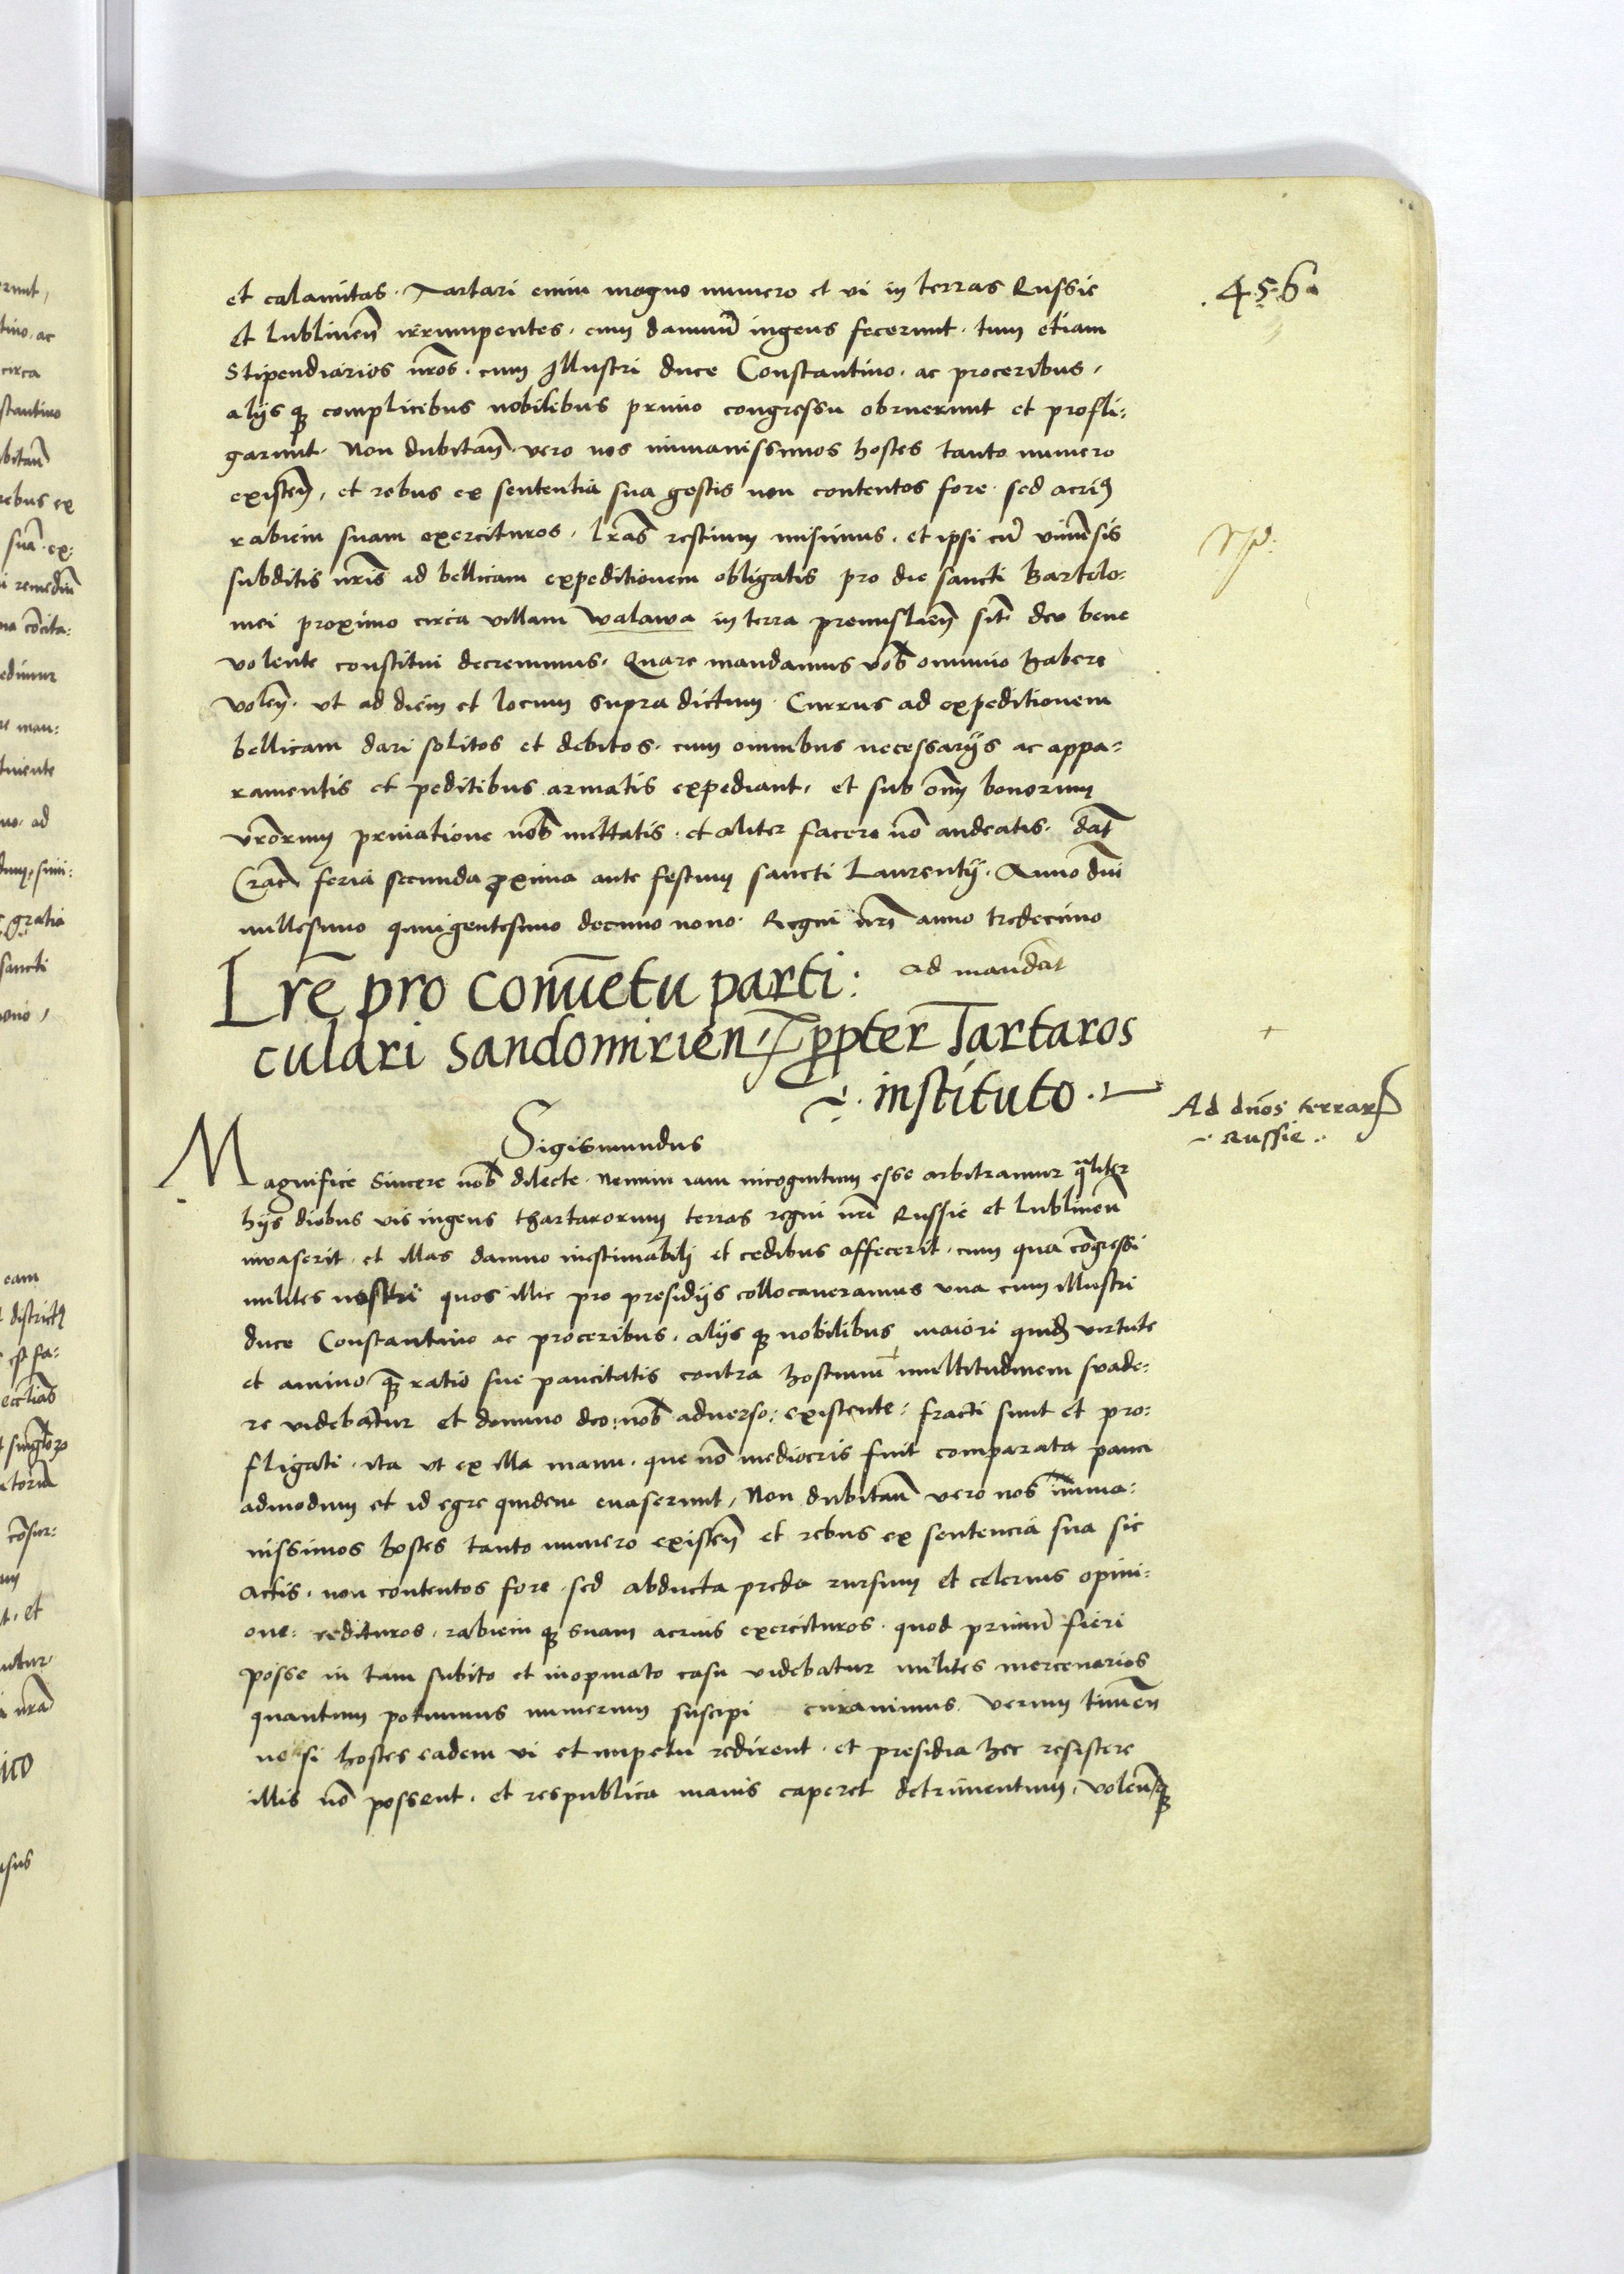 .456.
et calamitas. Tartari enim magno numero et vi in terras Russie
et Lublineñ irrumpentes. cum damnū ingens fecerunt. tum etiam
Stipendiarios nr̄os. cum Illustri duce Constantino. ac proceribus,
alijs q; complicibus nobilibus primo congressu obruerunt et profli:
garunt. Non dubitañ. vero nos immanissimos hostes tanto numero
existeñ, et rebus ex sententia sua gestis non contentos fore. sed acri9
rabiem suam exercituros. lr̄as restium misimus. et ipsi cū
subditis nr̄is ad bellicam expeditionem obligatis pro die sancti Bartolo:
mei proximo circa villam walawa in terra premislieñ sit̄ deo bene
volente constitui decrevimus. Quare mandamus vob̄ omnino habere
voleñ. ut ad diem et locum supra dictum. Currus ad expeditionem
bellicam dari solitos et debitos. cum omnibus necessarijs ac appa:
ramentis et peditibus armatis expediant, et sub om̄i bonorum
vr̄orum priuatione nob̄ mittatis. et aliter facere nō audeatis. dat̄
Crac̄ feria secunda proxima ante festum sancti Laurentij. Anno dn̄i
millesimo quingentesimo decimo nono. Regni nr̄i anno tredecimo
ad mandat̄
Lr̄e pro conuētu parti:
culari Sandomirieñ. propter Tartaros
instituto.
Ad dn̄os terrar
Russie
Sigismundus
Magnifice Sincere nob̄ dilecte. Nemini iam incognitum esse arbitramur qualiter
hijs diebus vis ingens thartarorum terras regni nr̄i Russie et Lublineñ
invaserit. et illas damno inestimabili et cedibus affecerit. cum qua cōgressi
milites nostri quos illic pro presidijs collocaueramus una cum illustri
duce Constantino ac proceribus. alijs q; nobilibus maiori quid virtute
et animo q; ratio sue paucitatis contra hostium multitudinem svade:
re videbatur et domino deo: nob̄ adverso: existente: fracti sunt et pro:
fligati. ita ut ex illa manu. que nō mediocris fuit comparata pauci
admodum et id egre quidem euaserunt, Non dubitañ vero nos imma:
nissimos hostes tanto numero existeñ et rebus ex sentencia sua sic
actis. non contentos fore. sed abducta preda rursum et celerius opini:
one: redituros. rabiem q; suam acrius exercituros. quod primū fieri
posse in tam subito et inopinato casu videbatur milites mercenarios
quantum potuimus numerum suscipi curauimus. Verum timeñ
ne si hostes eadem vi et impetu redirent. et presidia hec resistere
illis nō possent. et respublica maius caperet detrimentum. voleñq;